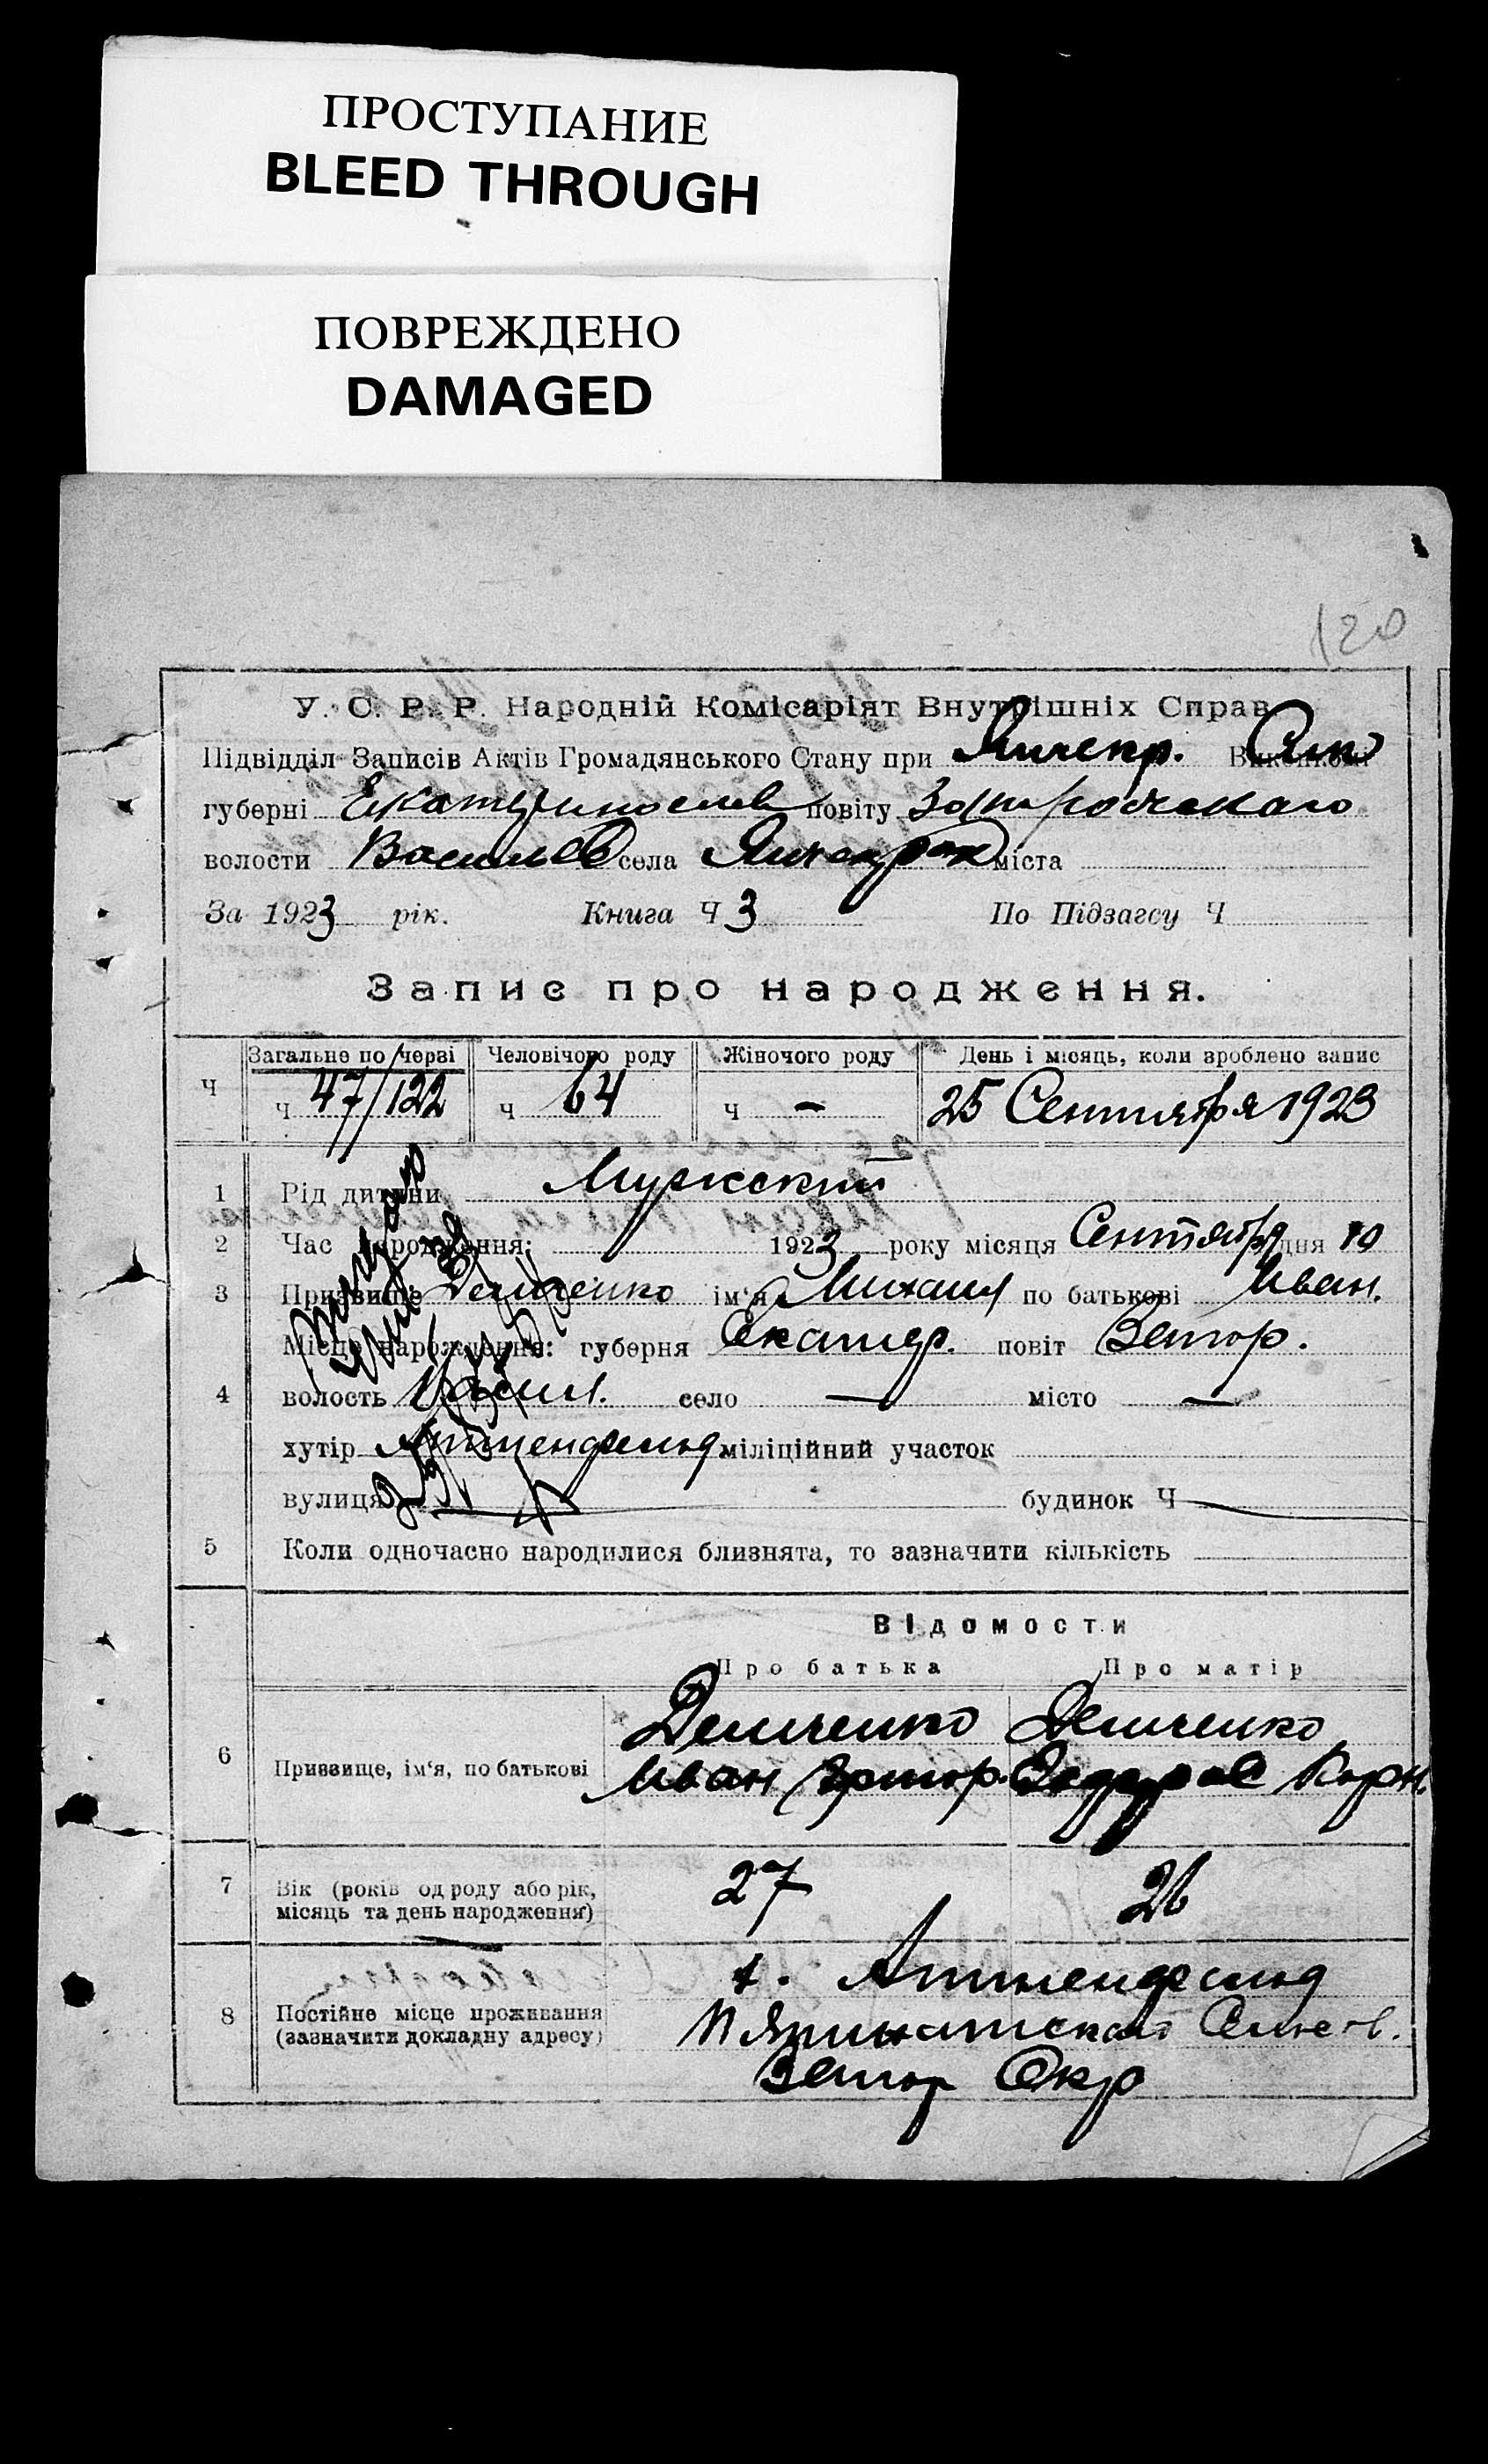 ПРОСТУПАНИЕ
BLEED THROUGH
ПОВРЕЖДЕНО
DAMAGED
120
У. С. Р. Р. Народній Комісаріят Внутрішніх Справ
Підвідділ Записів Актів Громадянського Стану при Янчекр.
губерні Екатеринослав повіту Запорожскаго
волости Васильев села Янчекрак міста
За 1923 рік. Книга Ч 3 По Підзагсу Ч
Запис про народження.
Загальне по черві Человічого роду Жіночого роду День і місяць, коли зроблено запис
Ч ч 47/122 ч 64 ч — 25 Сентября 1923
1 Рід дитини Мужский
2 Час народження: 1923 року місяця Сентября дня 10
3 Призвище Демченко ім'я Михаил по батькові Иван.
Місце народження: губерня Екатер. повіт Запор.
4 волость Васил. село — місто —
хутір міліційний участок
вулиця будинок Ч
5 Коли одночасно народилися близнята, то зазначити кількість
Відомости
Про батька Про матір
6 Призвище, ім'я, по батькові Демченко Иван Григор. Демченко Корн.
7 Вік (років од роду або рік, місяць та день народження) 27 26
8 Постійне місце проживання (зазначити докладну адресу)
Запор Окр